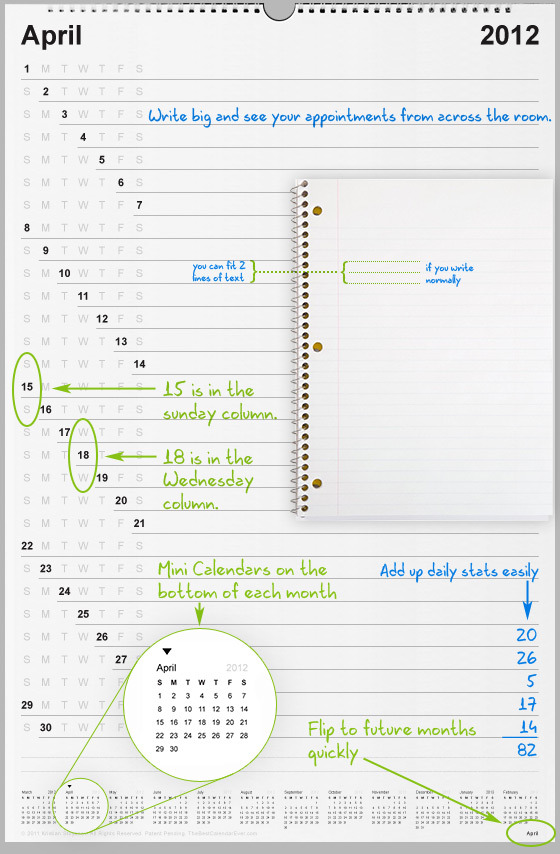 April 2012
1 M T W T F S
S 2 T W T F S
S M 3 W T F S Write big and see your appointments from across the room.
S M T 4 T F S
S M T W 5 F S
S M T W T 6 S
S M T W T F 7
8 M T W T F S
S 9 T W T F S
S M 10 W T F S
you can fit 2
lines of text
if you write
normally
S M T 11 T F S
S M T W 12 F S
S M T W T 13 S
S M T W T F 14
15 M T W T F S
15 is in the
sunday column.
S 16 T W T F S
S M 17 W T F S
S M T 18 T F S
18 is in the
Wednesday
column.
S M T W 19 F S
S M T W T 20 S
S M T W T F 21
22 M T W T F S
S 23 T W T F S
Mini Calendars on the
bottom of each month
Add up daily stats easily
S M 24 W T F S
S M T 25 T F S
S M T W 26 F S
20
S M T W T 27
26
5
29 M T W T F
17
S 30 T W T F
14
82
April 2012
S M T W T F S
1 2 3 4 5 6 7
8 9 10 11 12 13 14
15 16 17 18 19 20 21
22 23 24 25 26 27 28
29 30
Flip to future months
quickly
March 2012 April May June July August September October November December January 2013 February
April